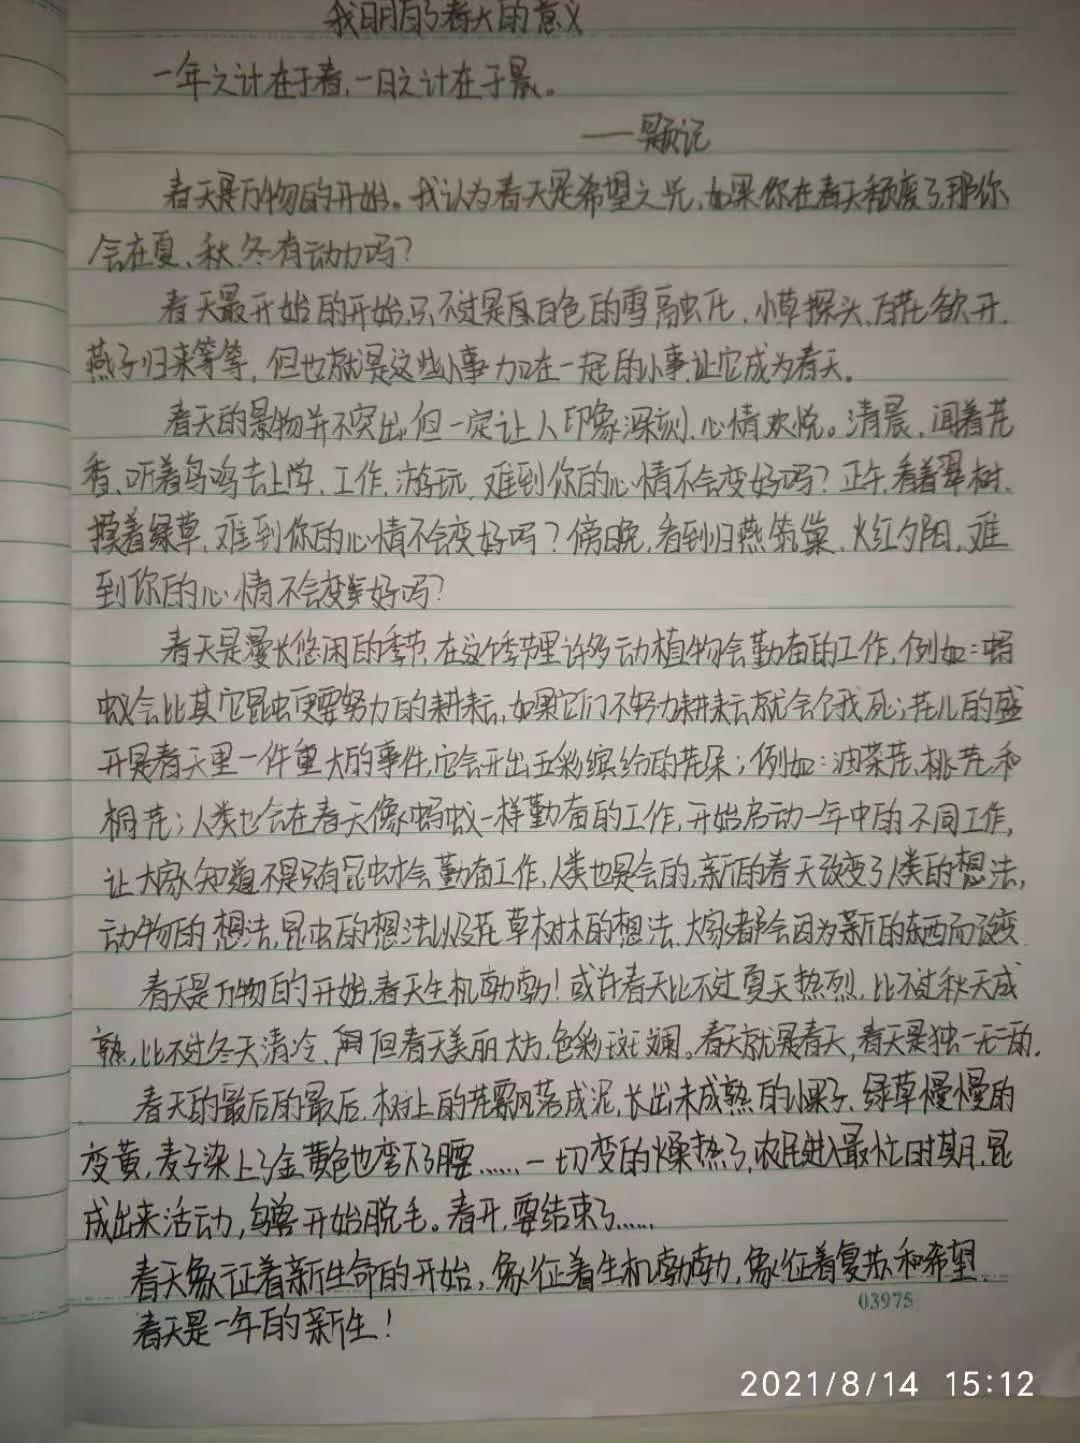 我明白了春天的意义
一年之计在于春,一日之计在于晨。
——题记
春天是万物的开始。我认为春天是希望之光,如果你在春天颓废了,那你
会在夏、秋、冬有动力吗?
春天最开始的开始,只不过是白色的雪融化、小草探头、百花欲开、
燕子归来等等,但也就是这些小事加在一起的小事让它成为春天。
春天的景物并不突出,但一定让人印象深刻、心情欢悦。清晨,闻着花
香、听着鸟鸣去上学、工作、游玩,难到你的心情不会变好吗?正午,看着翠树、
摸着绿草,难到你的心情不会变好吗?傍晚,看到归燕筑巢、火红夕阳,难
到你的心情不会变好吗?
春天是漫长悠闲的季节,在这个季节里许多动植物会勤奋的工作,例如:蚂
蚁会比其它昆虫更要努力的耕耘,如果它们不努力耕耘就会饿死;花儿的盛
开是春天里一件重大的事件,它会开出五彩缤纷的花朵;例如:油菜花、桃花和
桐花;人类也会在春天像蚂蚁一样勤奋的工作,开始启动一年中的不同工作,
让大家知道不是只有昆虫才会勤奋工作,人类也是会的,新的春天改变了人类的想法,
动物的想法,昆虫的想法以及花草树木的想法、大家都会因为新的东西而改变
春天是万物的开始,春天生机勃勃!或许春天比不过夏天热烈,比不过秋天成
熟,比不过冬天清冷、但春天美丽大方,色彩斑斓。春天就是春天,春天是独一无二的.
春天的最后的最后,树上的花要飘落成泥,长出未成熟的小果子、绿草慢慢的
变黄,麦子染上了金黄色也弯下了腰……一切变的燥热了,农民进入最忙时期,昆
成出来活动,鸟兽开始脱毛。春天,要结束了……
春天象征着新生命的开始,象征着生机勃勃,象征着复苏和希望
春天是一年的新生!
03975
2021/8/14 15:12